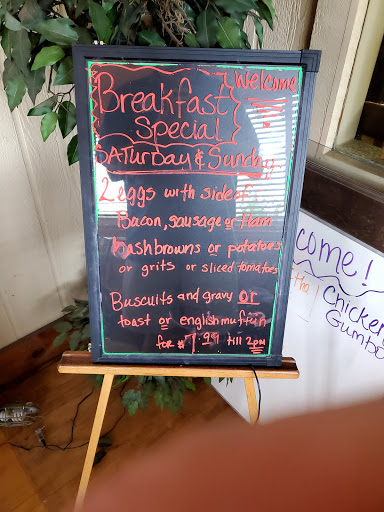 Welcome
Breakfast
Special
SATurday & Sunday
2 eggs with side of:
Bacon, sausage or Ham
hashbrowns or potatoes
or grits or sliced tomatoes
Buscuits and gravy or
toast or english muffin
for $7.99 till 2pm
come!
Chicken
Gumbo